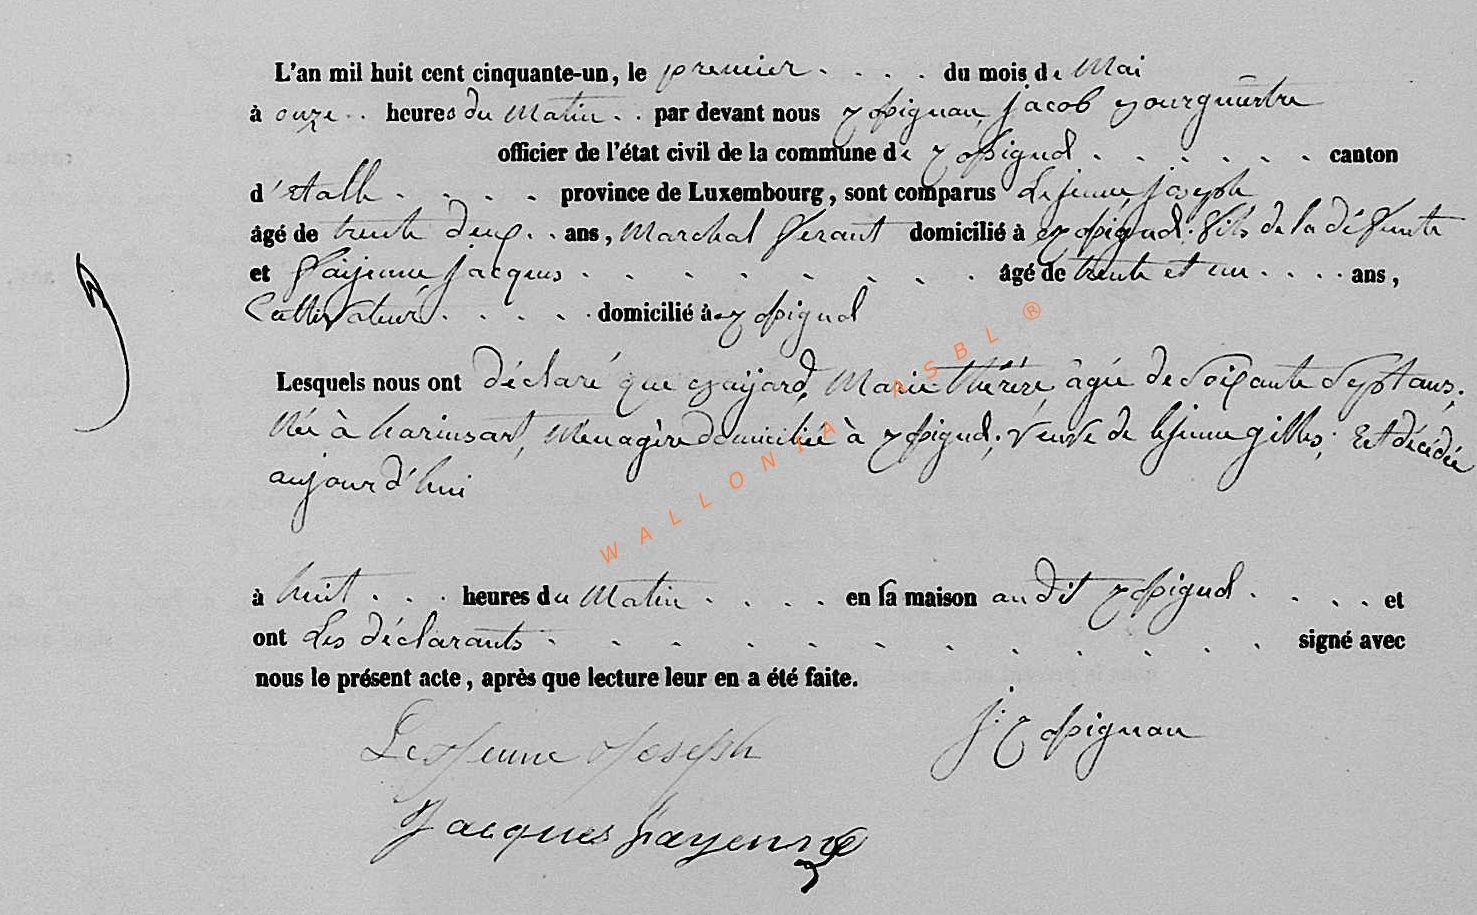 L'an mil huit cent cinquante-un, le premier . . . . du mois de Mai
à onze . . heures du Matin . . par devant nous Jacob Bourguestre
officier de l'état civil de la commune de . . . . . . canton
d' . . . . province de Luxembourg, sont comparus Lejeune Joseph
âgé de trente deux . . ans, Marchal ferant domicilié à fils de la défunte
et Fayenne Jacques . . . . . . . . . âgé de trente et un . . . . ans,
Cultivateur . . . . . domicilié à
Lesquels nous ont déclaré que Marie Thérèse, âgée de Soixante Sept ans,
Née à harinsart, Ménagère domiciliée à , Veuve de lejeune gilles; Est décédée
aujourd'hui
à huit . . . heures du Matin . . . . en sa maison au dit . . . . et
ont Les déclarants . . . . . . . . . . . . signé avec
nous le présent acte, après que lecture leur en a été faite.
LeJeune Joseph
Jacques fayenne
WALLONIA ASBL ®